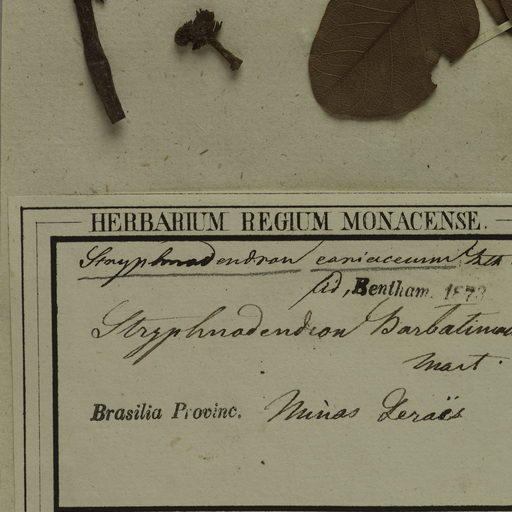 HERBARIUM REGIUM MONACENSE.
Stryphnodendron coriaceum Bth
fid, Bentham. 1873
Stryphnodendron Barbatimao
Mart.
Brasilia Provinc. Minas Geraës